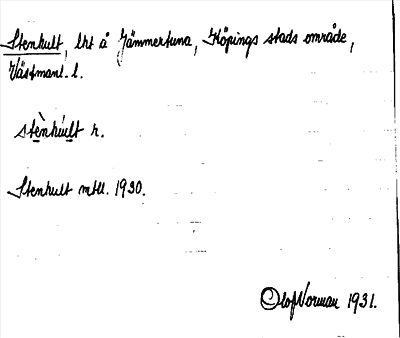 Stenhult, lht å Jämmertuna, Köpings stads område,
Västmanl. l.
stènhúlt n.
Stenhult mtll. 1930.
Olof Norman 1931.